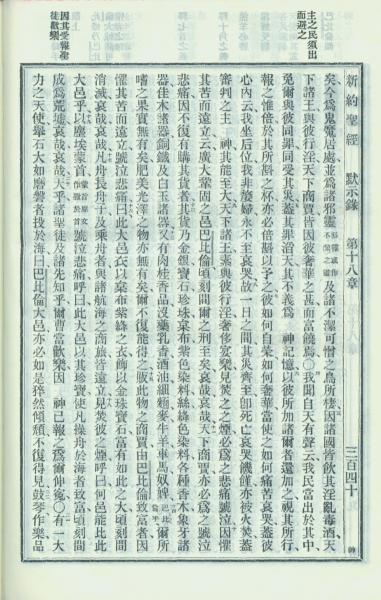 新約聖經 默示錄 第十八章 三百四十
主之民須出
而避之
矣今為鬼魔居處並為諸邪靈及諸不潔可憎之鳥所棲因諸國皆飲其淫亂毒酒天
下諸王與彼行淫天下商賈皆因彼奢華之甚而富饒焉〇我聞自天有聲云我民當出於其中
免爾與彼同罪同受其災蓋其罪滔天其不義為 神記憶以彼所加諸爾者還加之視其所行
報之惟倍於其所斟之杯亦必倍斟以予之彼如何自榮如何奢華當使之如何痛苦哀哭蓋彼
心內云我坐后位我非嫠婦永不至哀哭故一日之間其災齊至即死亡哀哭饑饉亦被火焚蓋
審判之主 神其能至大天下諸王素與彼行淫奢侈宴樂見焚之之煙必為之悲痛號泣因懼
其苦而遠立云廣大鞏固之邑巴比倫頃刻間爾之刑至矣哀哉哀哉天下商賈亦必為之號泣
悲痛因不復有購其貨者其貨乃金銀寶石珍珠枲布紫色染料絲絳色染料各種香木象牙諸
器佳木諸器銅鐵及白玉諸器又有肉桂香品沒藥乳香酒油細麵麥牛羊車馬奴婢爾所
嗜之果實無有矣肥美光澤之物亦無有矣爾不復能得之販此物之商賈由巴比倫致富者因
懼其苦而遠立號泣悲痛曰此大邑衣以枲布紫絳之衣飾以金珠寶石富有如此之大頃刻間
消滅哀哉哀哉凡舟長舟子及乘舟者與諸航海之商旅皆遠立見焚彼之煙呼曰何邑能比此
大邑乎以塵埃蒙首蒙首原文作撒於首號泣悲痛呼曰此大邑以其珍寶使凡操舟於海者致富頃刻間
因其受報聖
徒歡樂
成為荒墟哀哉哀哉天乎諸聖使徒及諸先知乎爾曹當歡樂因 神已報之為爾伸冤〇有一大
力之天使舉石大如磨磐者投於海曰巴比倫大邑亦必如是猝然傾頹不復得見鼓琴作樂品